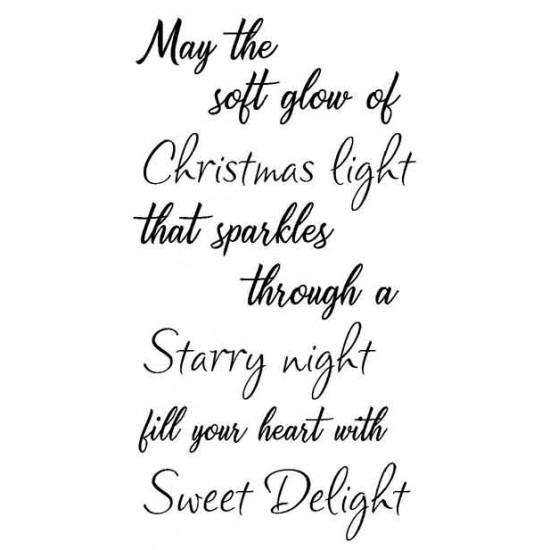 May the
soft glow of
Christmas light
that sparkles
through a
Starry night
fill your heart with
Sweet Delight